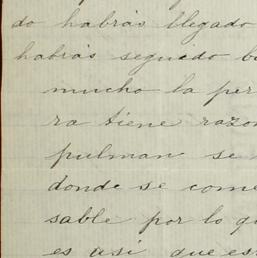 do habrás llegado
habrás seguido b
mucho la per
ra tiene razo
pulman se
donde se come
sable por lo q
es así que es